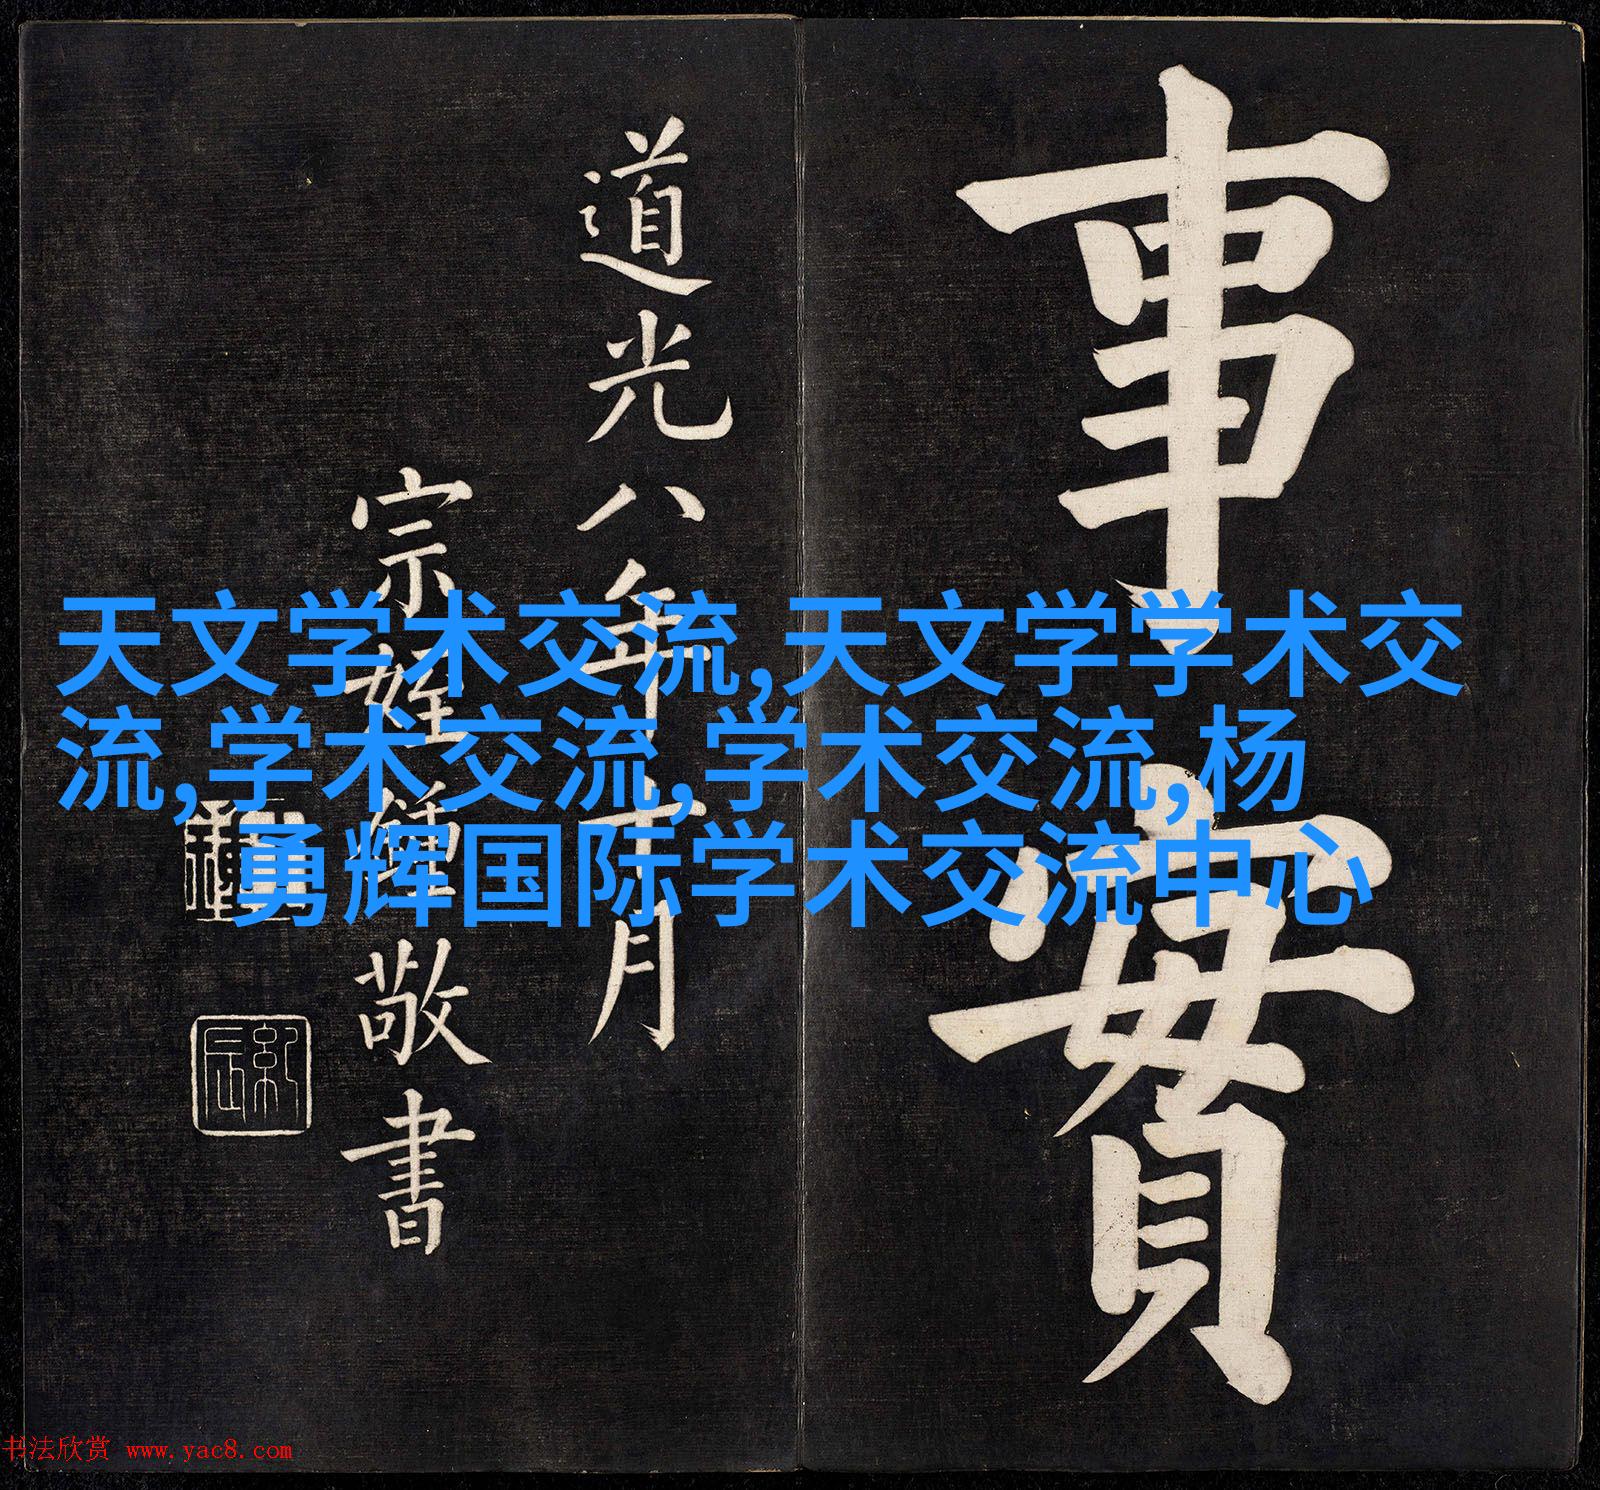 事實
道光八年十月
宗姪敬書
天文学术交流,天文学学术交
流,学术交流,学术交流,杨
勇辉国际学术交流中心
书法欣赏 www.yac8.com